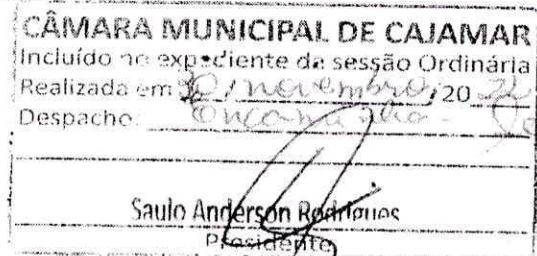 CÂMARA MUNICIPAL DE CAJAMAR
Incluído no expediente da sessão Ordinária
Realizada em 30 / novembro / 20 22
Despacho: Encaminha-se
Saulo Anderson Rodrigues
Presidente